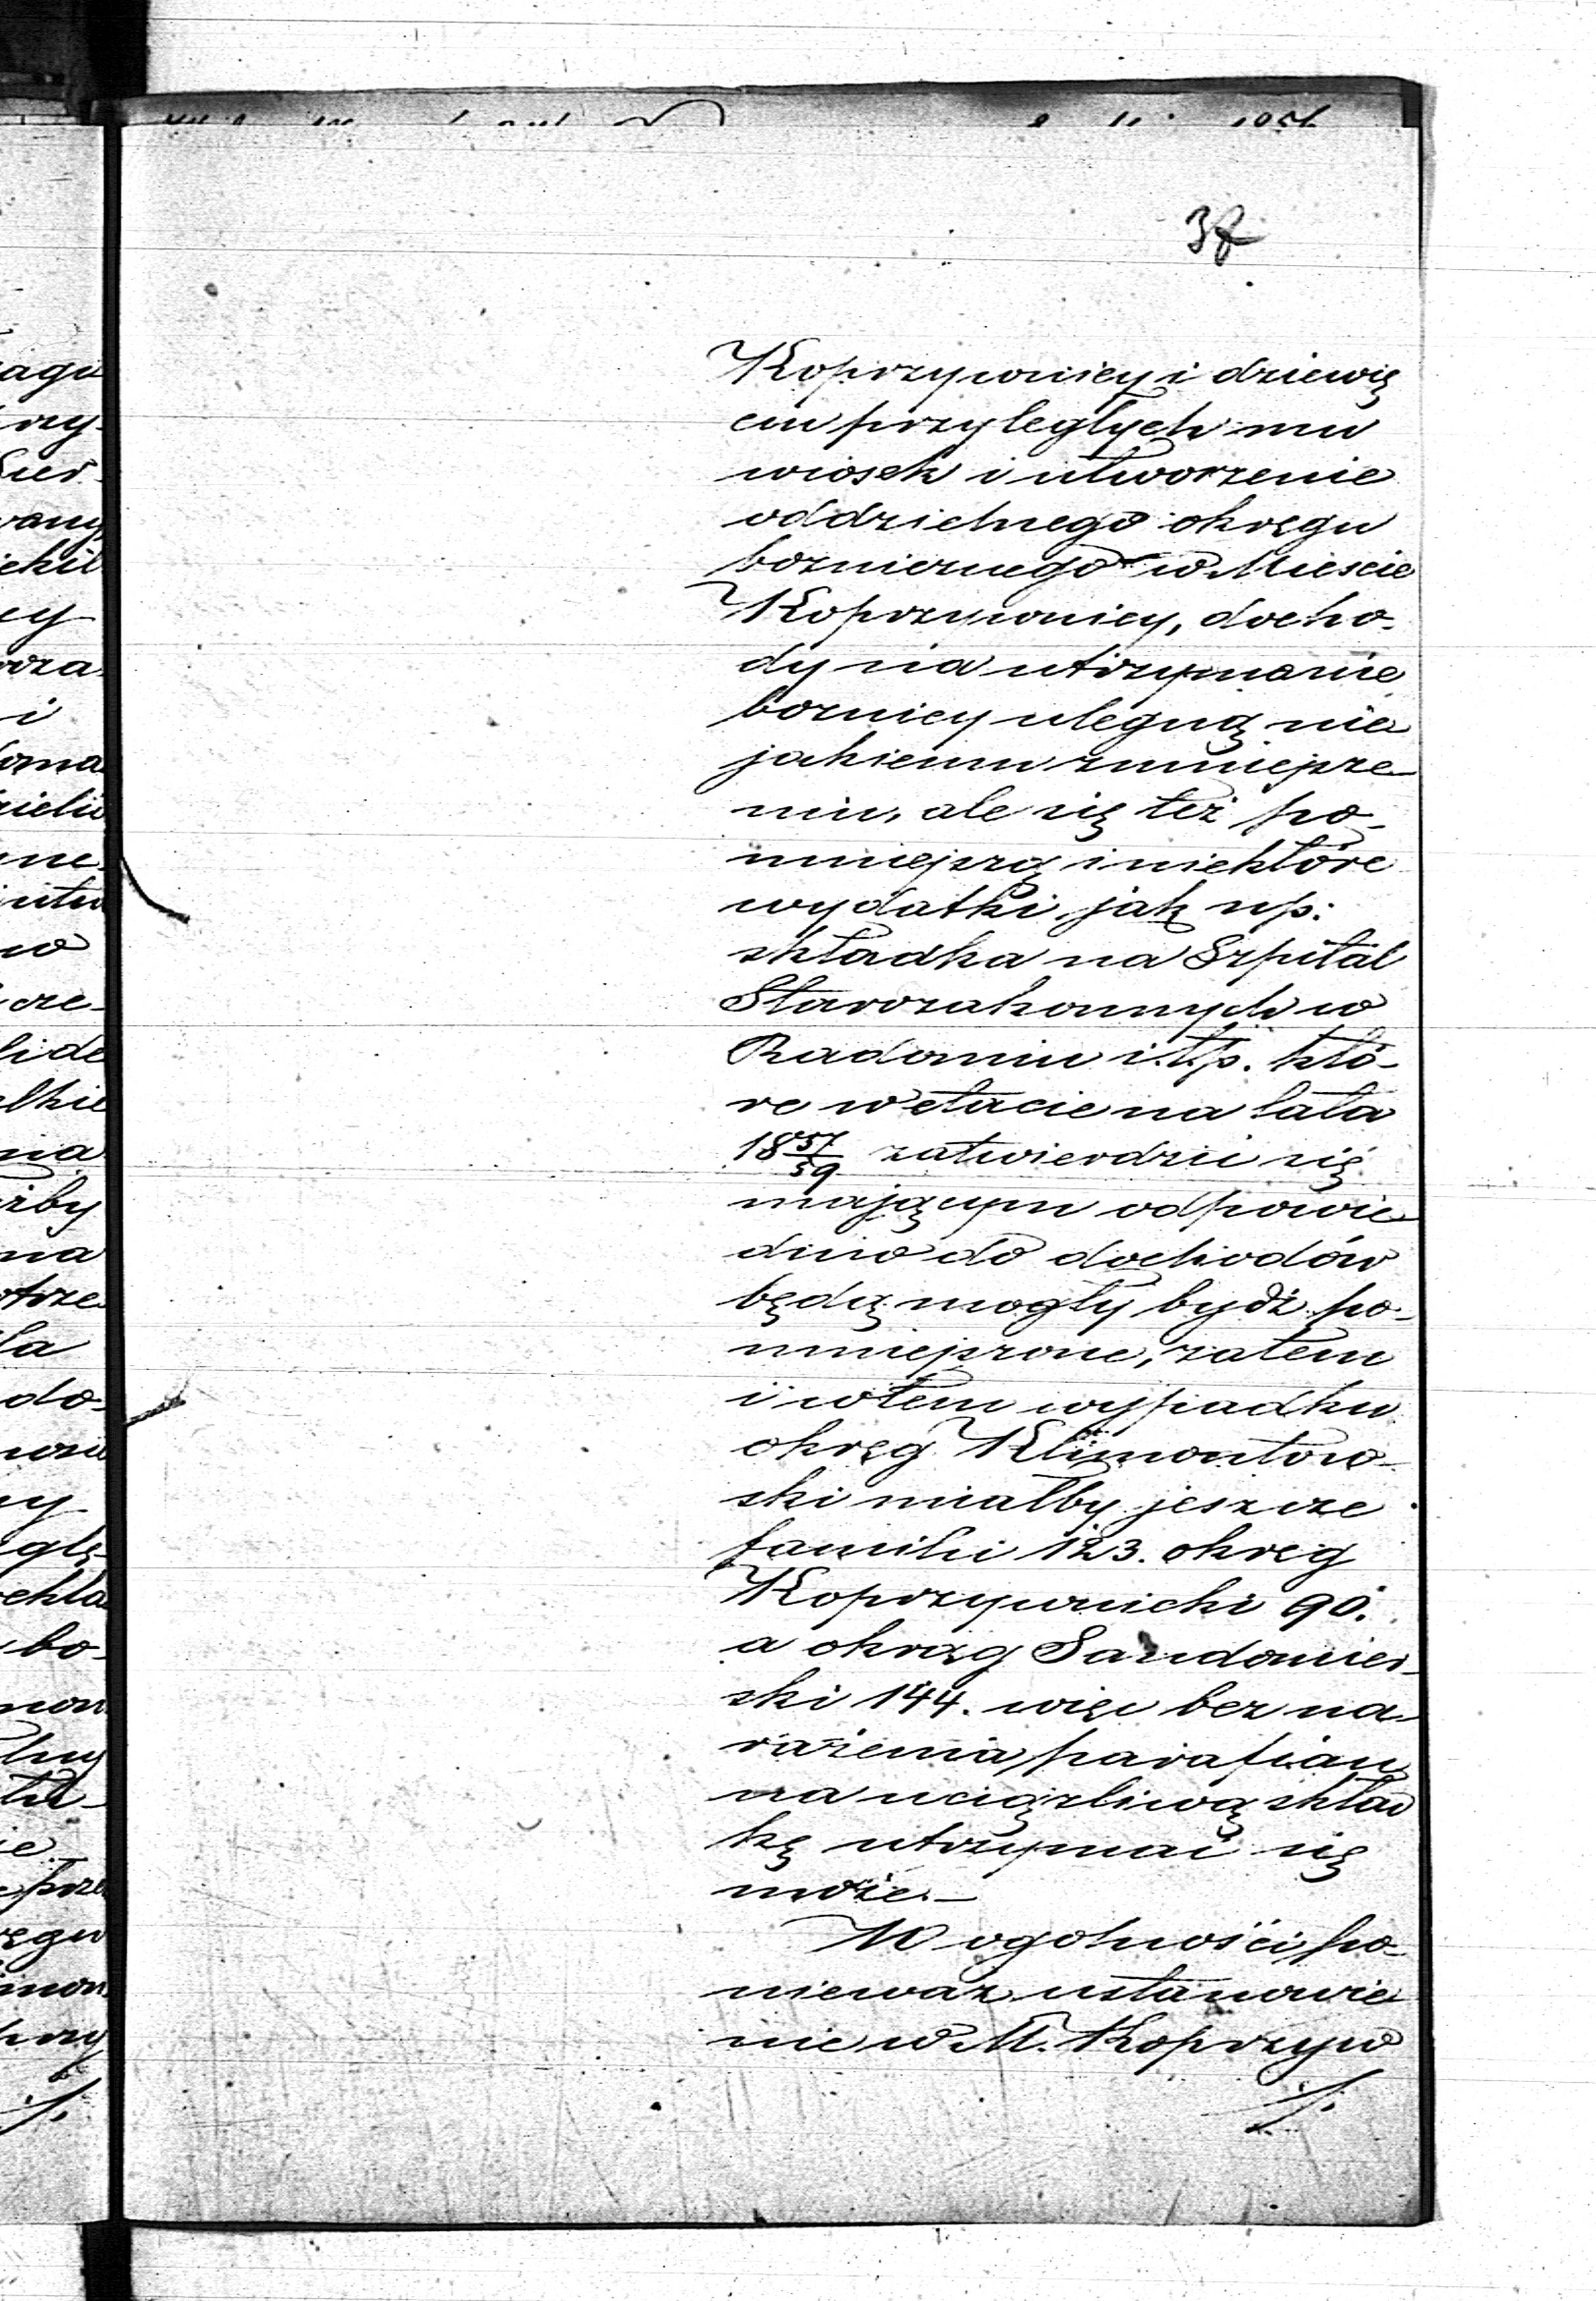 37
Koprzywnicy i dziewię
ciu przyległych mu
wiosek i utworzenie
oddzielnego okręgu
bożniczego w Miescie
Koprzywnicy, docho-
dy na utrzymanie
bożnicy ulegną nie
jakiemu zmniejsze-
niu, ale się też po-
mniejszą i niektóre
wydatki, jak np:
składka na Szpital
Starozakonnych w
Radomiu i.t.p. któ-
re w etacie na lata
18 57/59 zatwierdzić się
mającym odpowie
dnio do dochodów
będą mogły bydź po-
mniejszone, zatem
i w tem wypadku
okręg Klimontow-
ski miałby jeszcze
familii 123. okręg
Koprzywnicki 90.
a okręg Sandomier-
ski 144. więc bez na-
rażenia parafian
na uciążliwą skład
kę utrzymać się
może.—
W ogolności, po-
nieważ ustanowie
nie w M. Koprzyw